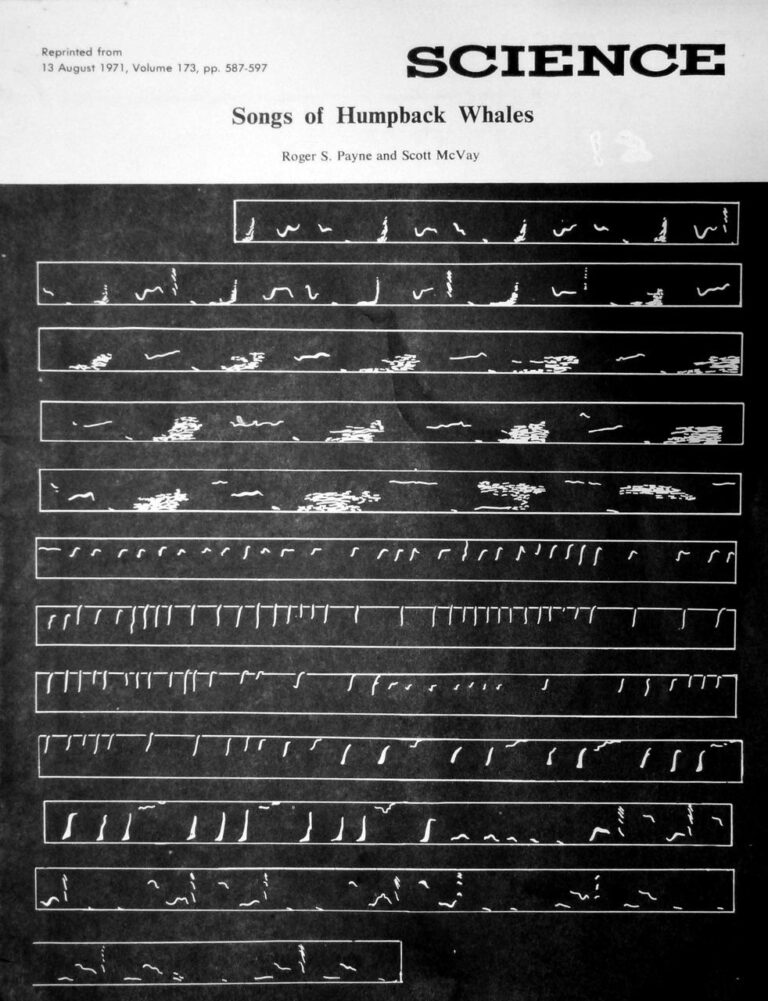 Reprinted from
13 August 1971, Volume 173, pp. 587-597
SCIENCE
Songs of Humpback Whales
Roger S. Payne and Scott McVay